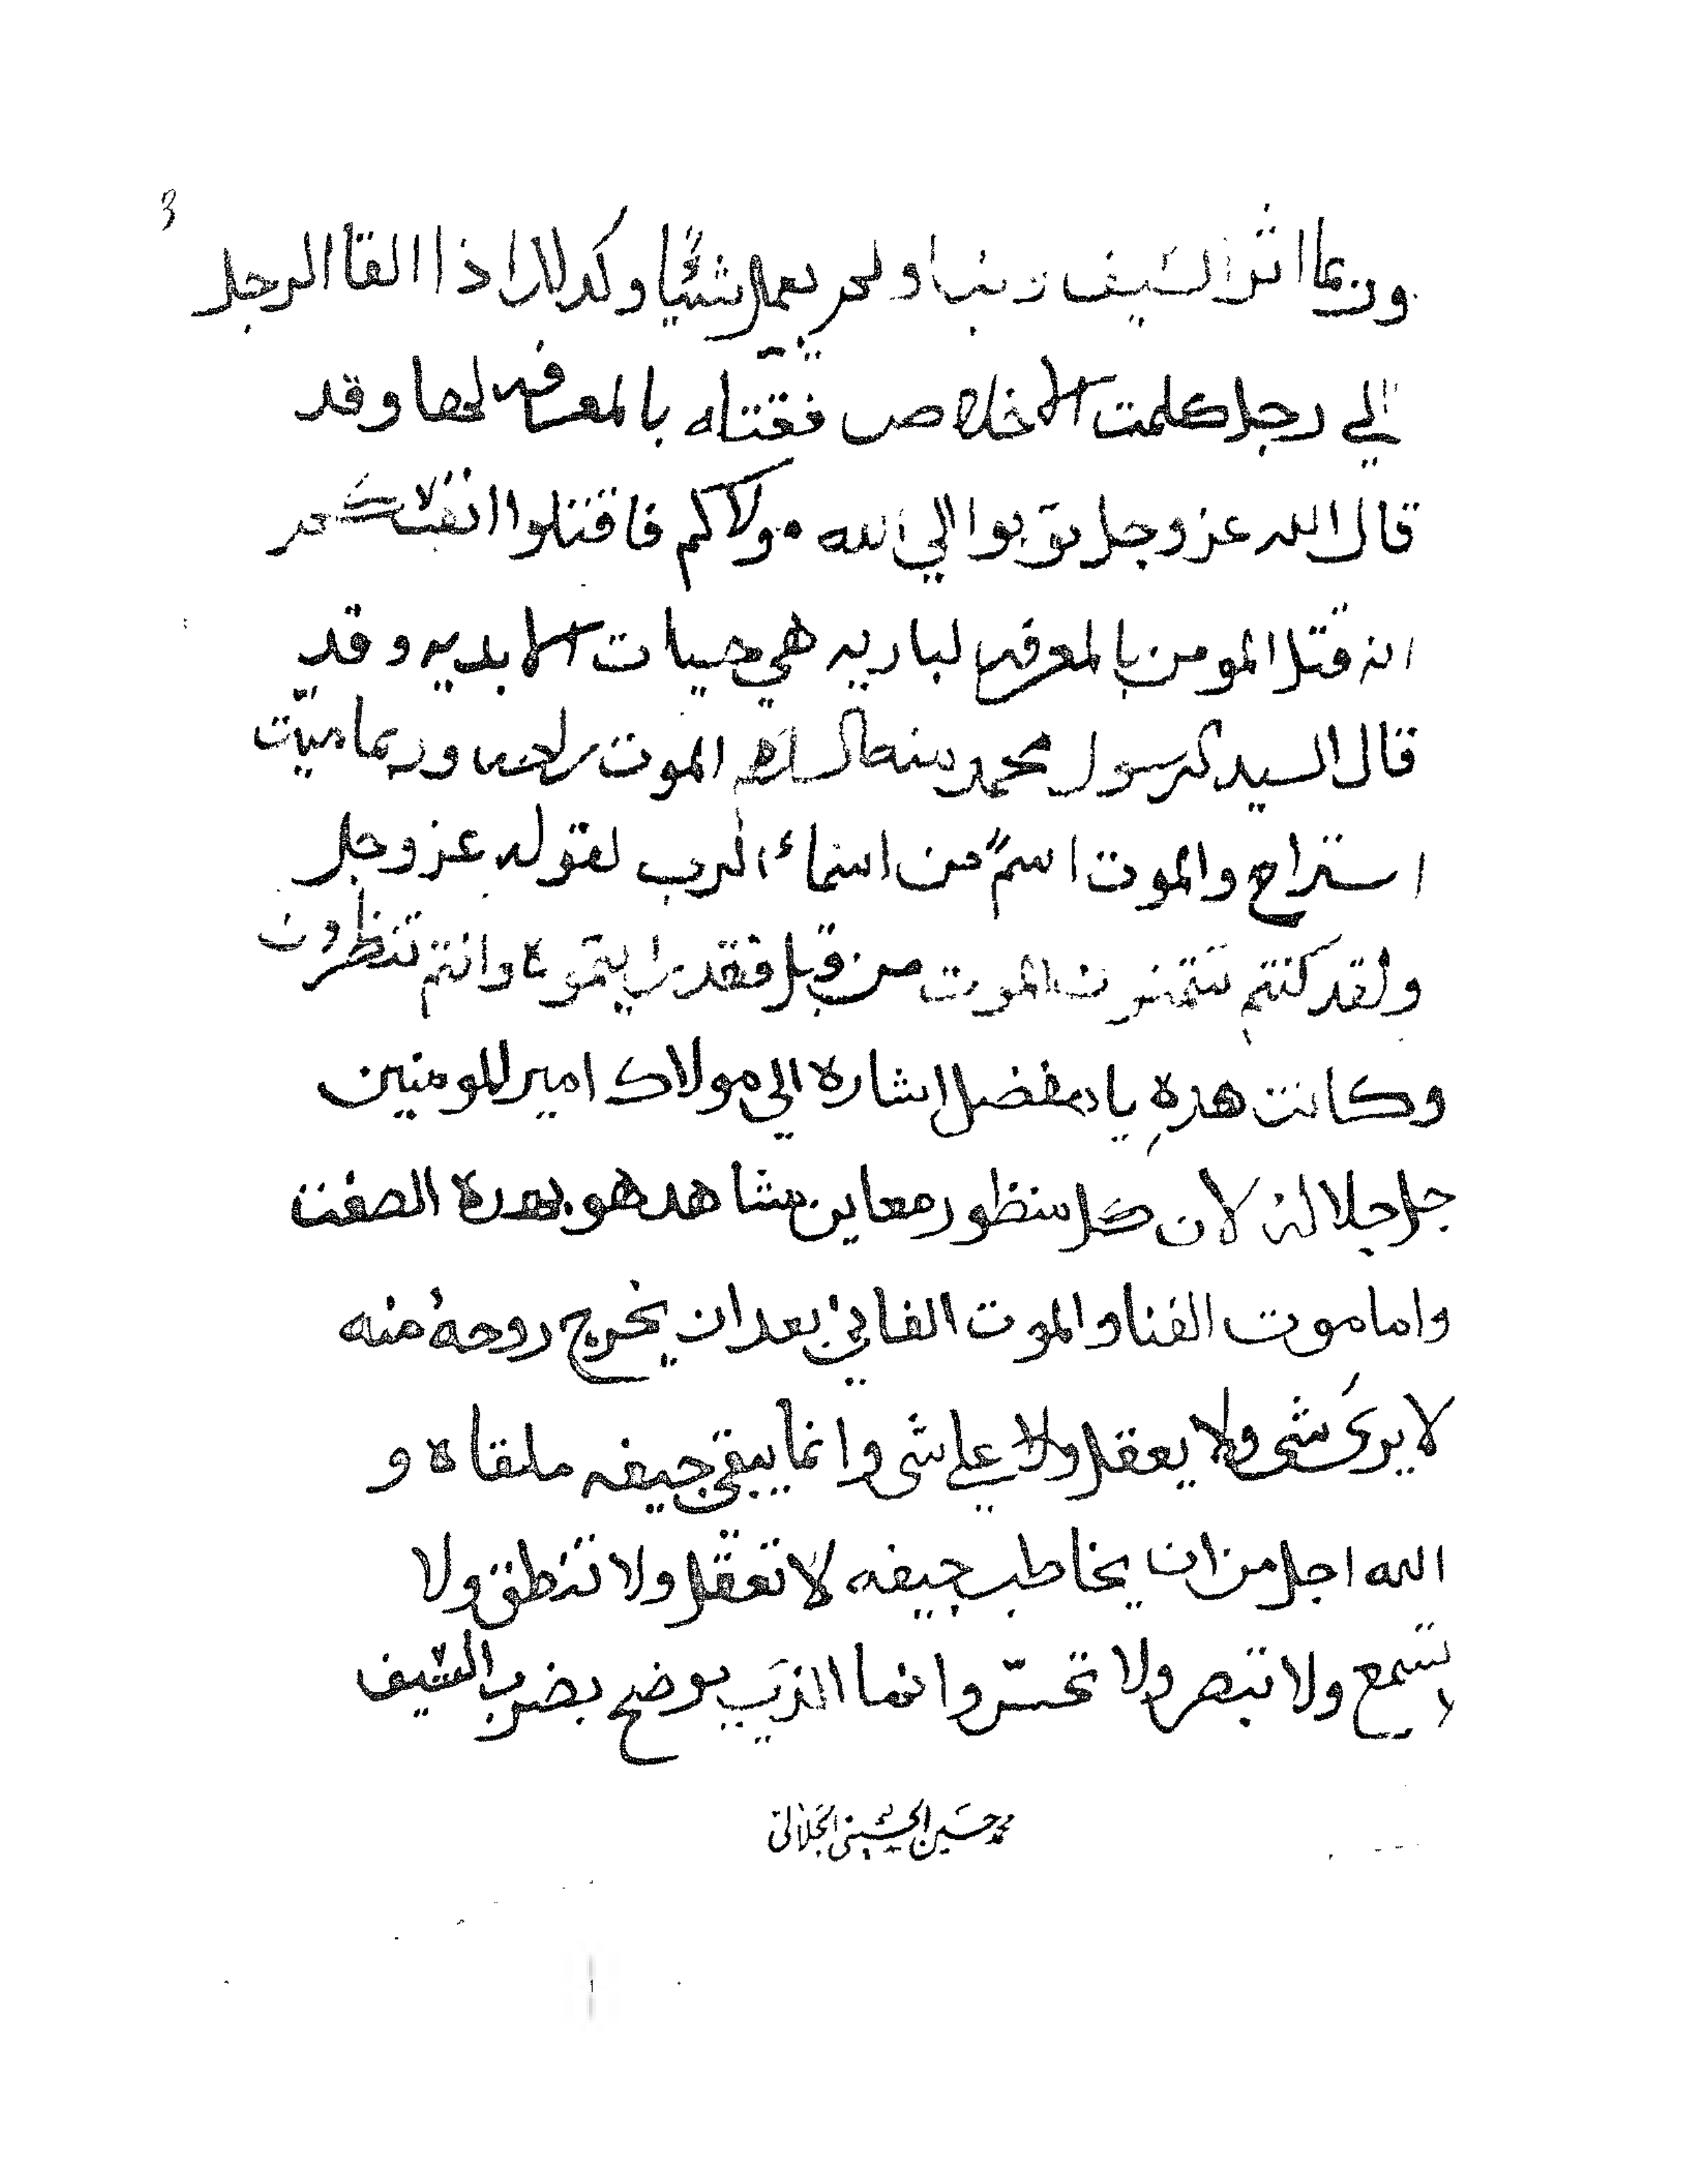 3
وربما اثر السيف ولم يعمل شيئًا وكدلك اذا القا الرجل
الي رجل كلمت الاخلاص فقتله بالمعرفه لحها وقد
قال الله عز وجل توبوا الي الله مولاكم فاقتلوا انفسكم
انه قتل المومن بالمعرفه لباريه هي حيات الابديه وقد
قال السيد الرسول محمد منه السلام الموت راحه وربما ميت
استراح والموت اسمً من اسماء الرب لقوله عز وجل
ولقد كنتم تتمنون الموت من قبل فقد رايتموه وانتم تنظرون
وكانت هده يا مفضل اشاره الي مولاك امير المومنين
جل جلاله لان كل منظور معاين مشاهد هو بهده الصفت
واما موت الفنا والموت الفاني بعد ان يخرج روحهُ منه
لا يرى شي ولا يعقل ولا علي شي وانما يبقي جيفه ملقاه و
الله اجل من ان يخاطب جيفه لا تعقل ولا تنطق ولا
تسمع ولا تبصر ولا تحسّ وانما الذي يوضح بضرب السيف
محمد حسين الحسيني الجلالي